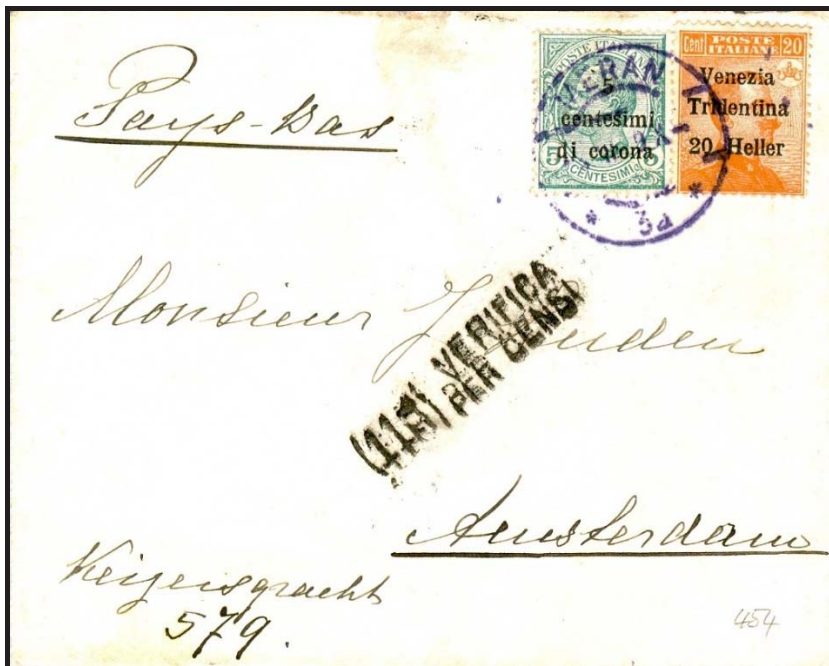 Pays-Bas
POSTE ITALIANE
5
centesimi
di corona
CENTESIMI
Cent POSTE ITALIANE 20
Venezia
Tridentina
20 Heller
MERAN
3d
VERIFICA
PER CENS
Monsieur J.
Amsterdam
Keizersgracht
579.
454